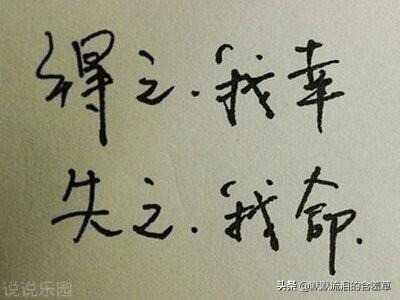 得之.我幸
失之.我命.
说说乐园
头条@默默流泪的含羞草